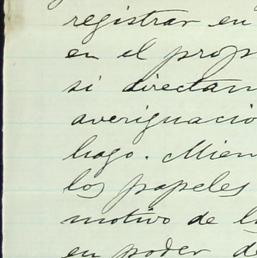 registrar en
en el prop
si directam
averiguacio
hago. Mien
los papeles
motivo de l
en poder de